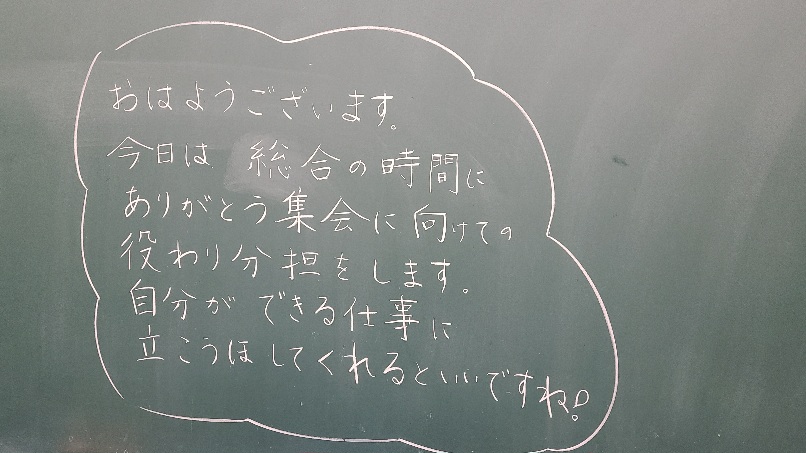 おはようございます。
今日は 総合の時間に
ありがとう集会に向けての
役わり分担をします。
自分ができる仕事に
立こうほしてくれるといいですね!